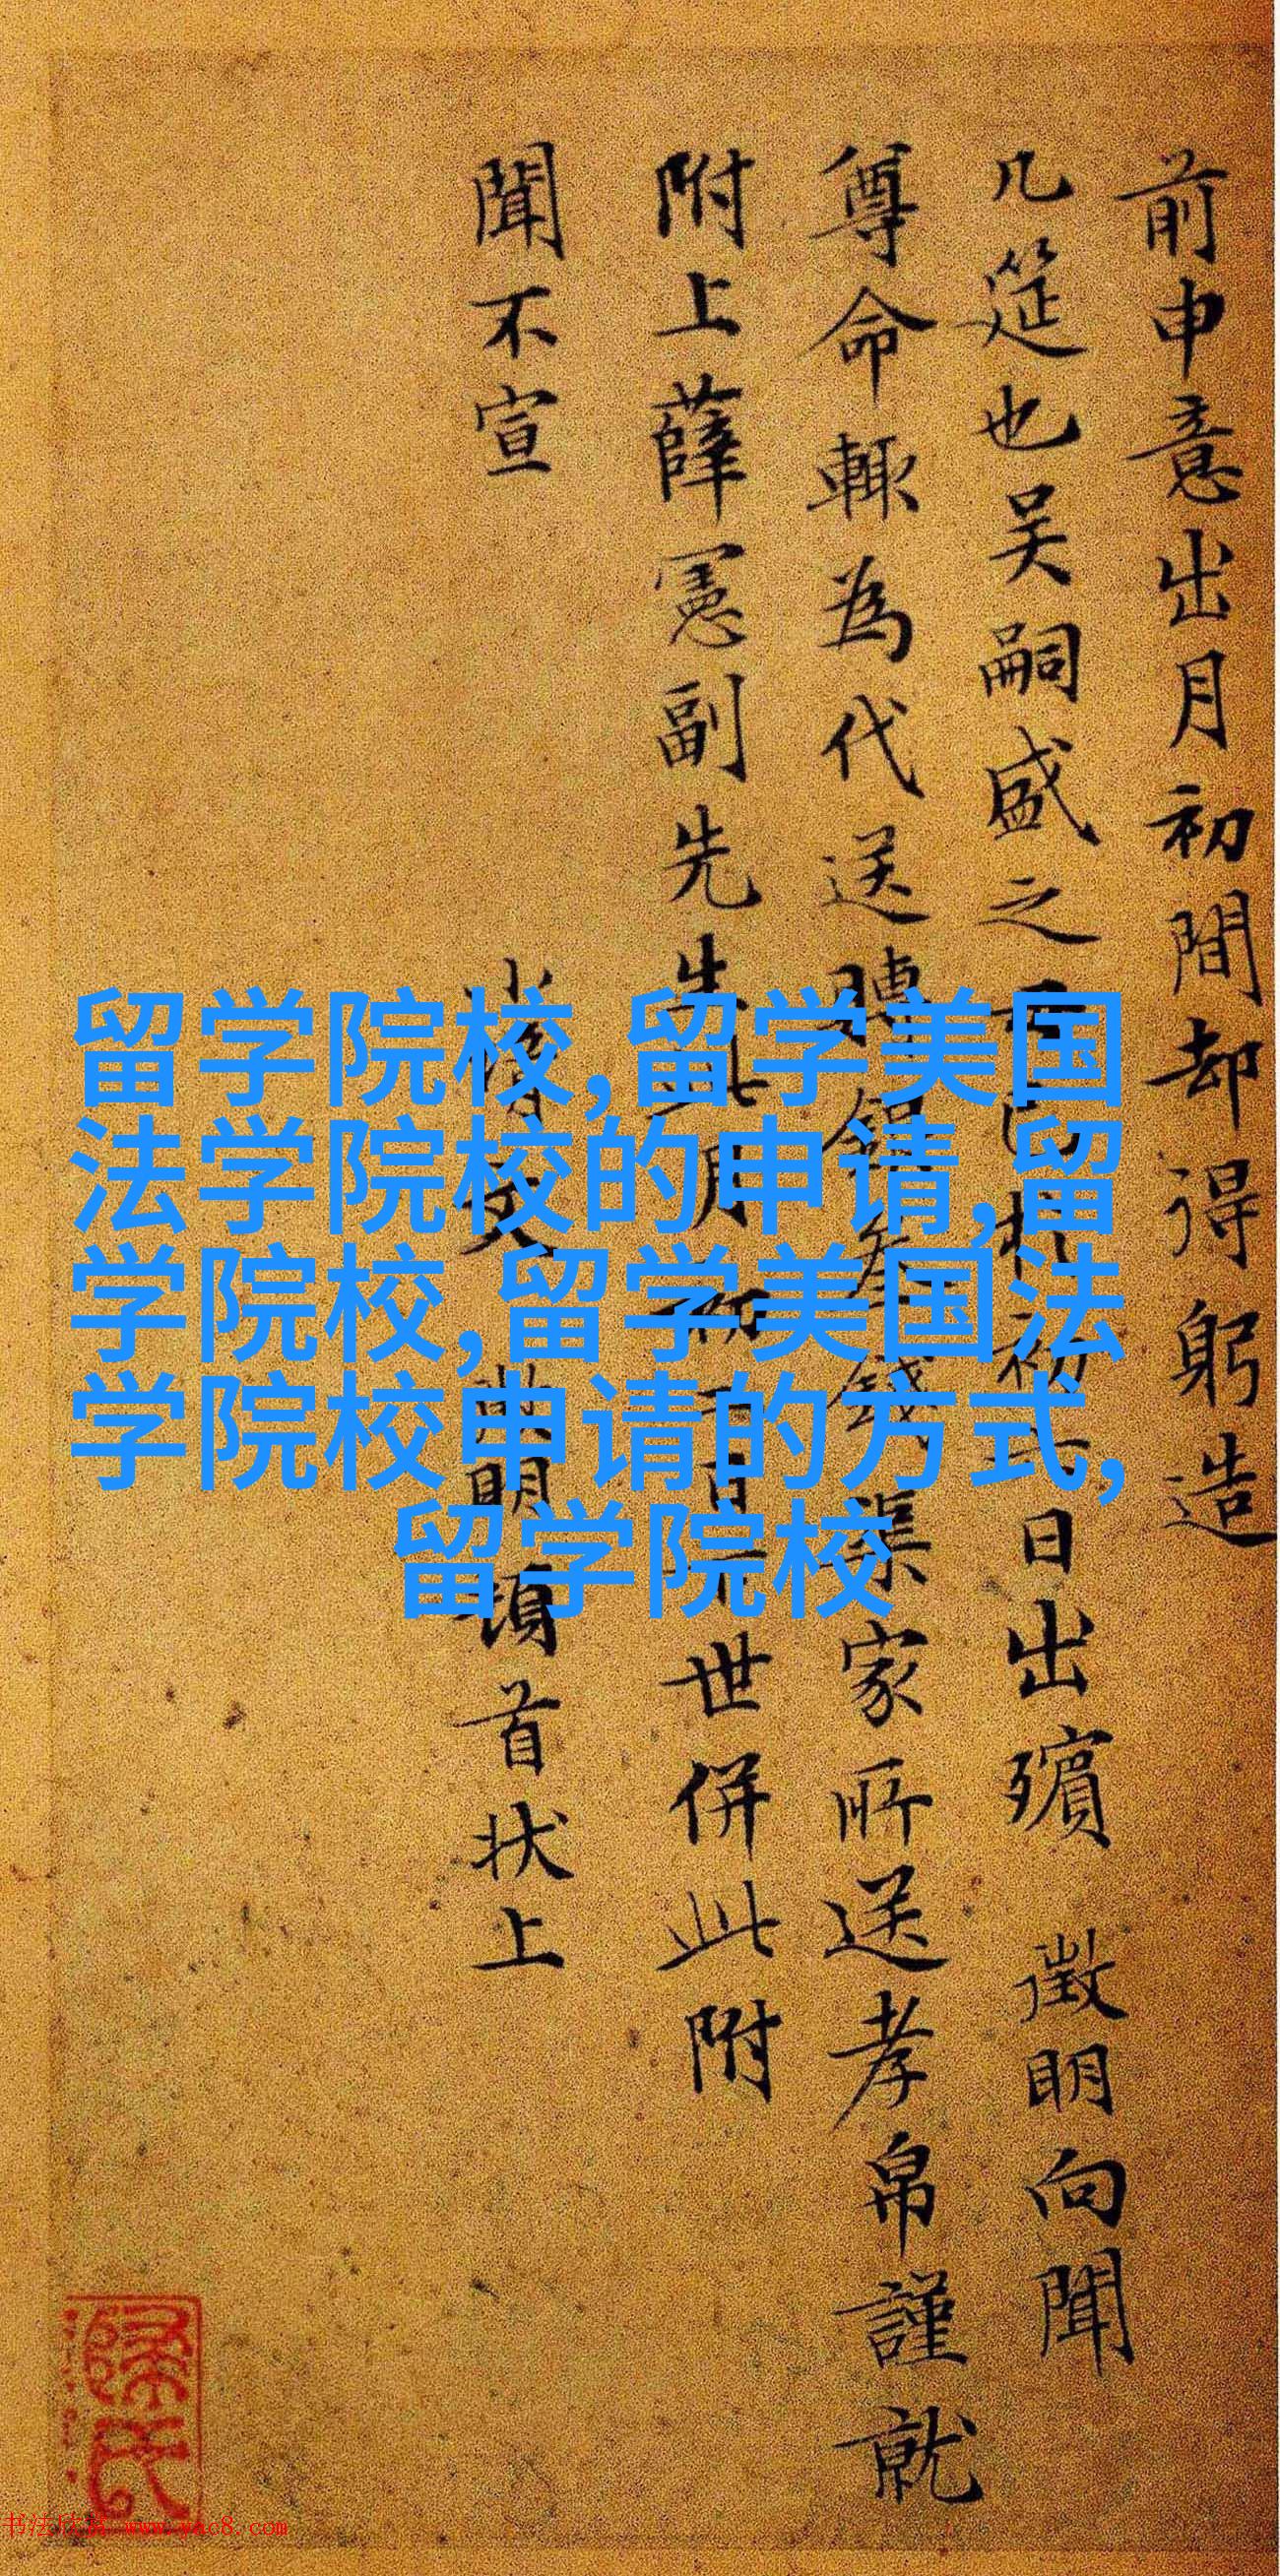 前申意出月初間却得躬造
几筵也吴嗣盛之日出殯 徵明向聞
尊命輙為代送家所送孝帛謹就
附上薛憲副先生世併此附
聞不宣
明頓首状上
留学院校,留学美国
法学院校的申请,留
学院校,留学美国法
学院校申请的方式,
留学院校
书法欣赏 www.yac8.com